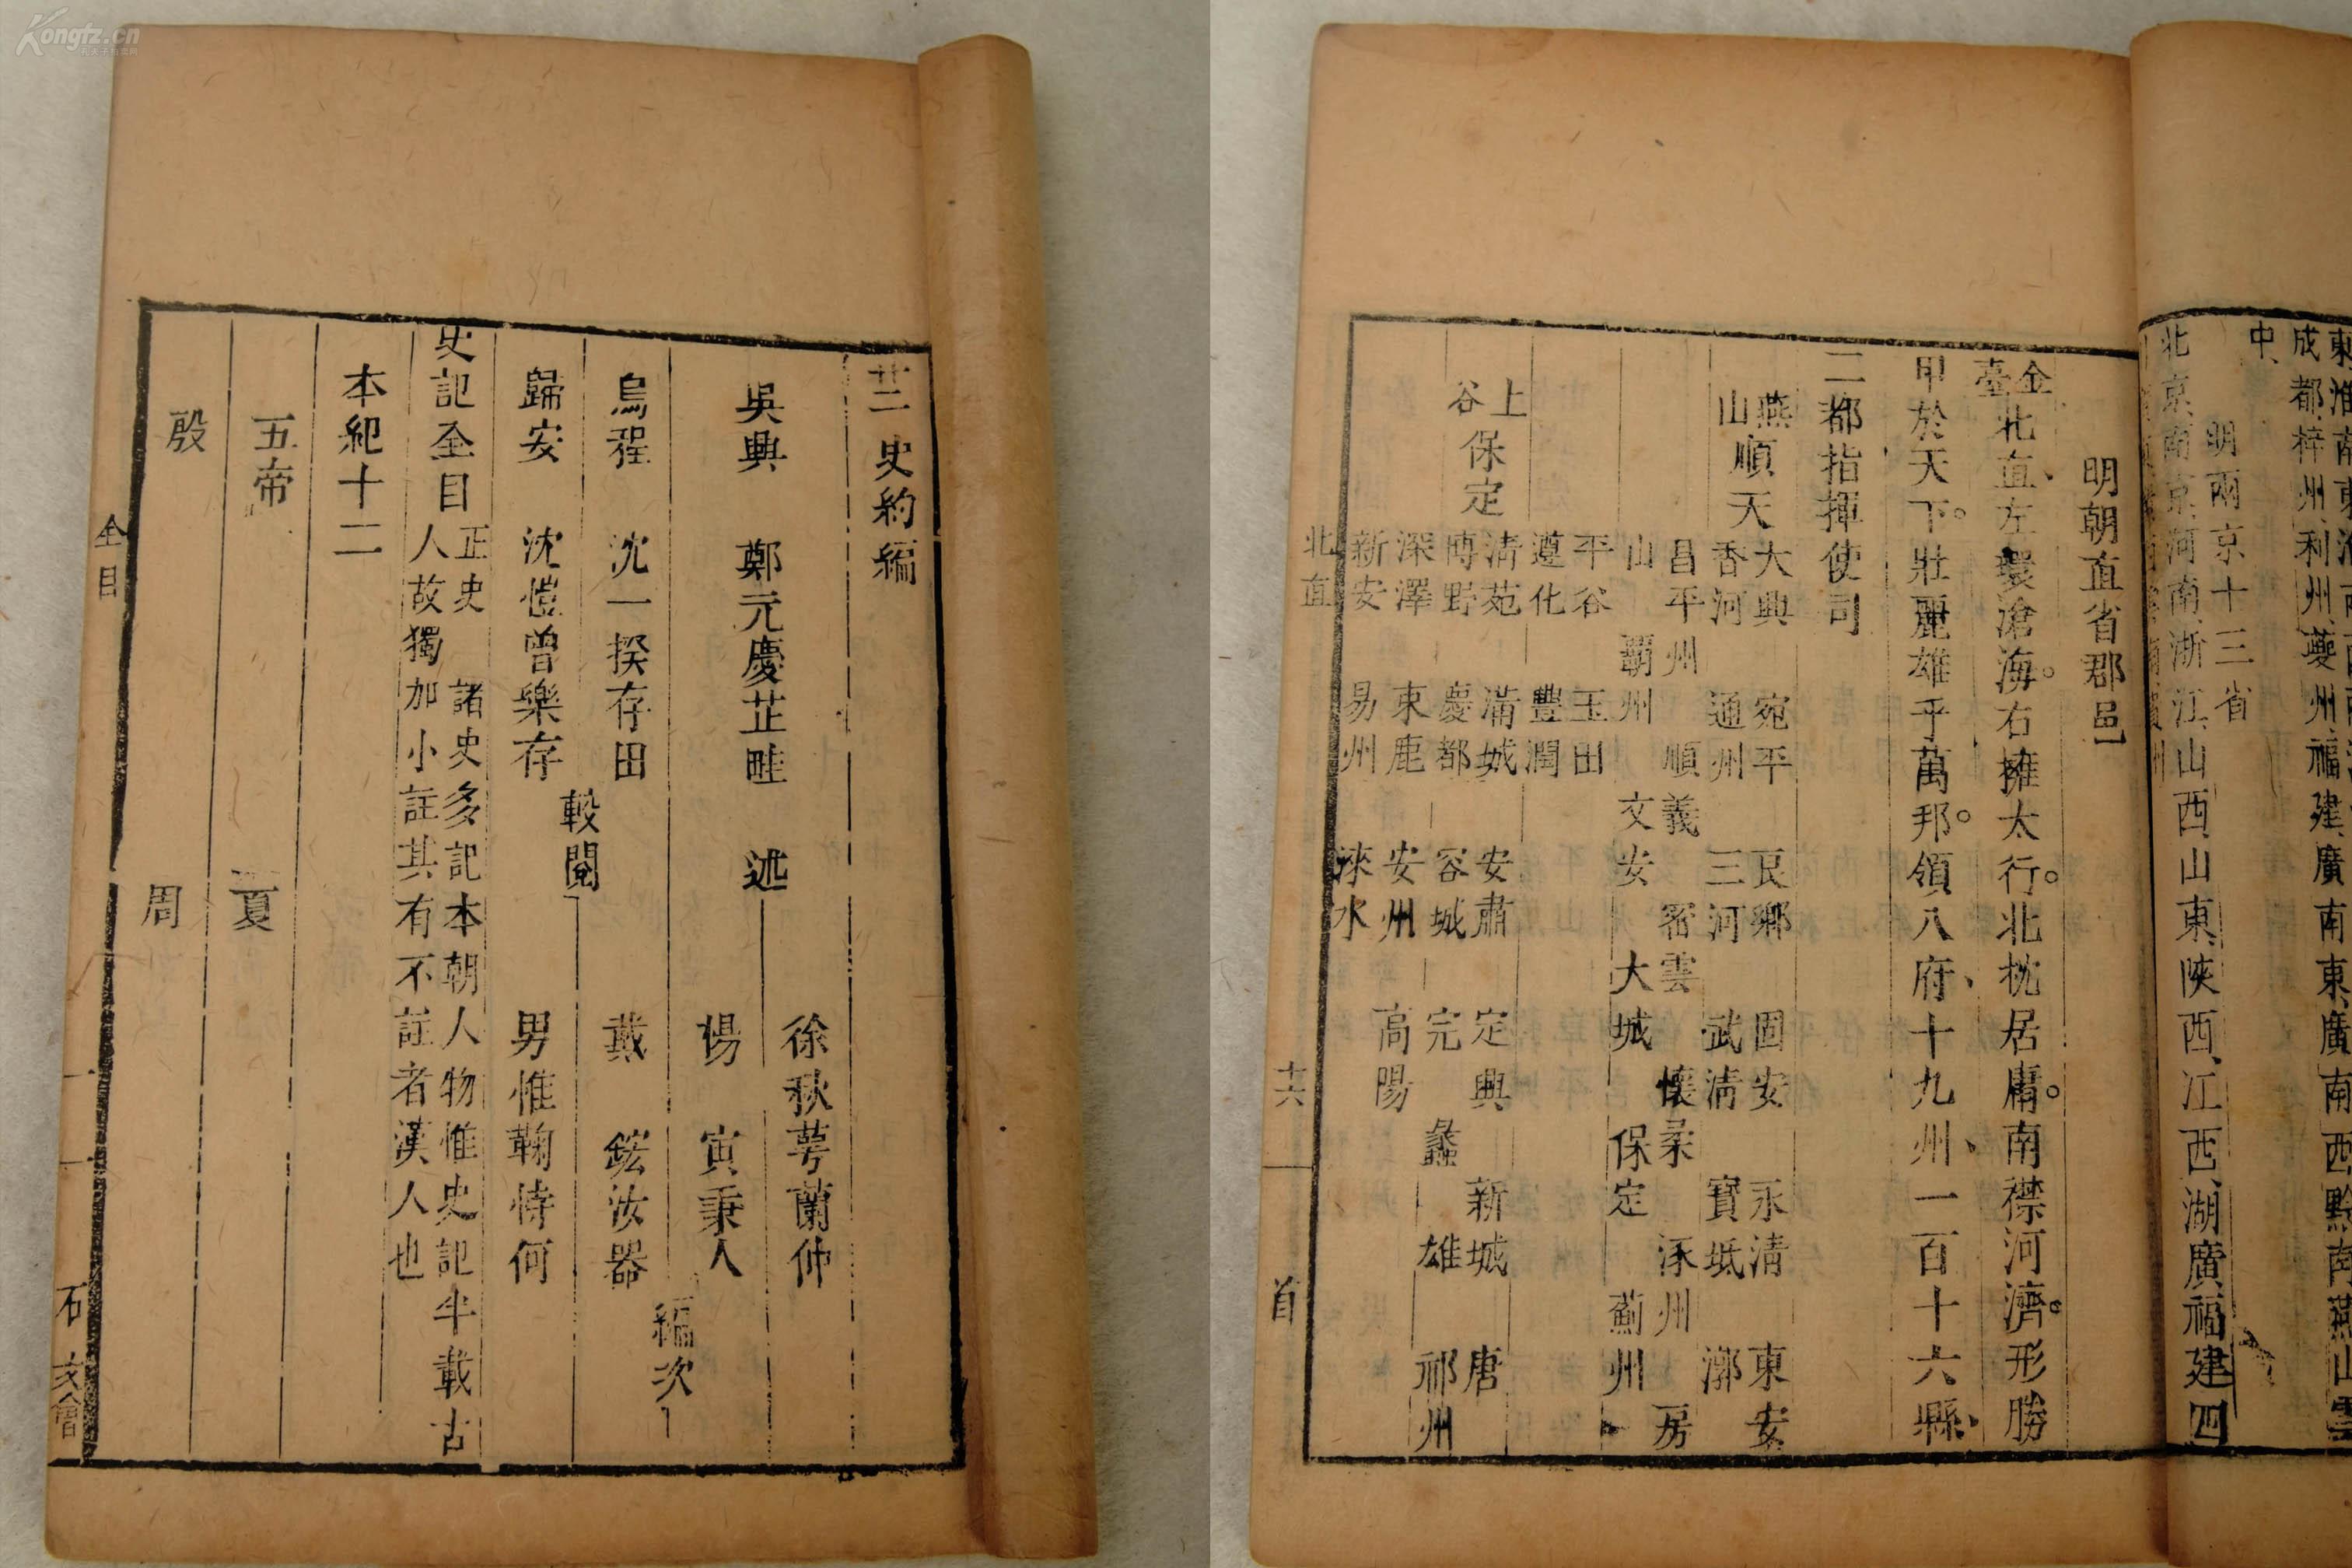 Kongfz.cn
廿一史約編
吳興 鄭元慶芷畦 述
徐秋蕚蘭仲
楊 寅秉人
編次
烏程 沈一揆存田
歸安 沈愷曾樂存
較閱
戴 鋐汝器
男惟鞠恃何
史記全目
正史 諸史多記本朝人物惟史記半載古
人故獨加小註其有不註者漢人也
本紀十二
五帝 夏
殷 周
全目
一
石 文會
東淮南東淮南西
成都梓州利州夔州福建廣南東廣南西黔南燕山雲
中
明兩京十三省
北京南京河南浙江山西山東陝西江西湖廣福建四
明朝直省郡邑
金臺 北直左環滄海右擁太行北枕居庸南襟河濟形勝
甲於天下壯麗雄乎萬邦領八府十九州一百十六縣
二都指揮使司
燕山 順天 大興 宛平 良鄉 固安 永清 東安
香河 通州 三河 武清 寶坻 漷
昌平州 順義 密雲 懷柔 涿州 房
山 霸州 文安 大城 保定 薊州
平谷 玉田
遵化 豐潤
上谷 保定 清苑 滿城 安肅 定興 新城 唐
博野 慶都 容城 完 蠡 雄 祁州
深澤 東鹿 安州 高陽
新安 易州 淶水
北直
十六
首